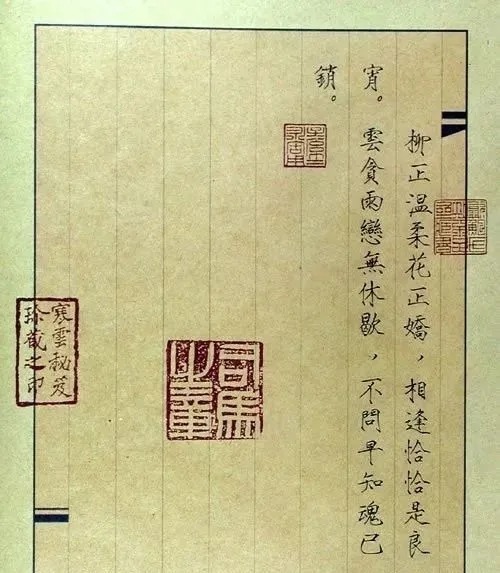 柳正溫柔花正嬌，相逢恰恰是良
宵。雲貪雨戀無休歇，不問早知魂已
銷。
司馬
之章
寒雲秘笈
珍藏之印